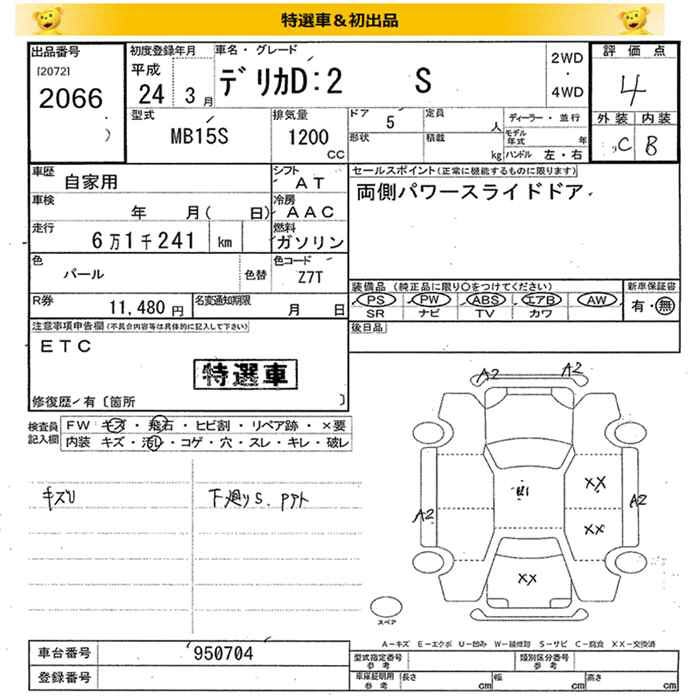 特選車＆初出品
出品番号
[2072]
2066
)
初度登録年月
平成
24 3月
車名・グレード
デリカD:2 S
2WD
・
4WD
評価点
4
外装 内装
C B
型式
MB15S
排気量
1200
CC
ドア
5
定員
人
形状
積載
kg
ディーラー・並行
モデル年式
年
ハンドル 左・右
車歴
自家用
シフト
AT
車検
年 月( 日)
冷房
AAC
走行
6万1千241 km
燃料
ガソリン
色
パール
色替
色コード
Z7T
R券
11,480 円
名変通知期限
月 日
セールスポイント(正常に機能するものに限ります)
両側パワースライドドア
装備品 (純正品に限り○をつけてください)
PS PW ABS エアB AW
SR ナビ TV カワ
新車保証書
有・無
後日品
注意事項申告欄(不具合内容等は具体的に記入して下さい)
ETC
特選車
修復歴/有〔箇所 〕
検査員
記入欄
FW キズ・飛石・ヒビ割・リペア跡・×要
内装 キズ・汚レ・コゲ・穴・スレ・キレ・破レ
キズU
下廻りS. PPト
A2
A2
A2
A2
XX
XX
XX
スペア
A－キズ E－エクボ U－凹み W－補修跡 S－サビ C－腐食 XX－交換済
車台番号
950704
登録番号
型式指定番号
参考
類別区分番号
参考
車庫証明用
参考
長さ
cm
幅
cm
高さ
cm